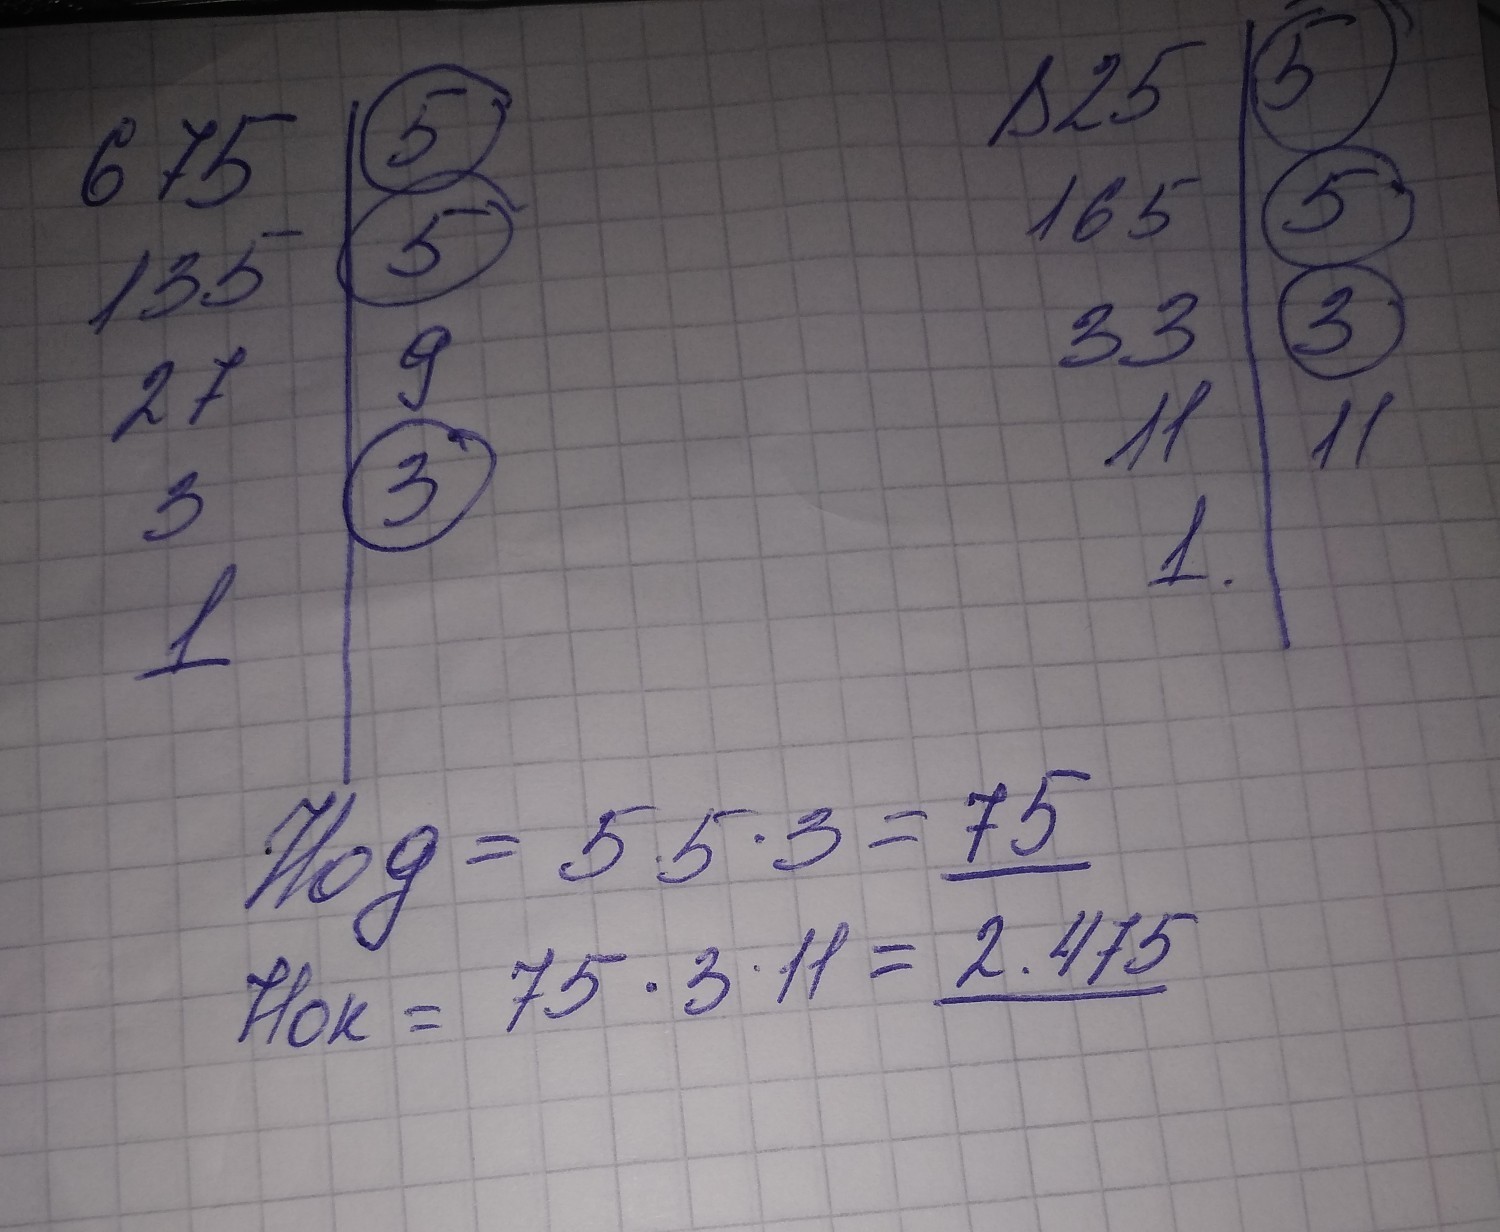 675 5
135 5
27 9
3 3
1
825 5
165 5
33 3
11 11
1.
Нод = 5.5·3 = 75
Нок = 75·3·11 = 2.475